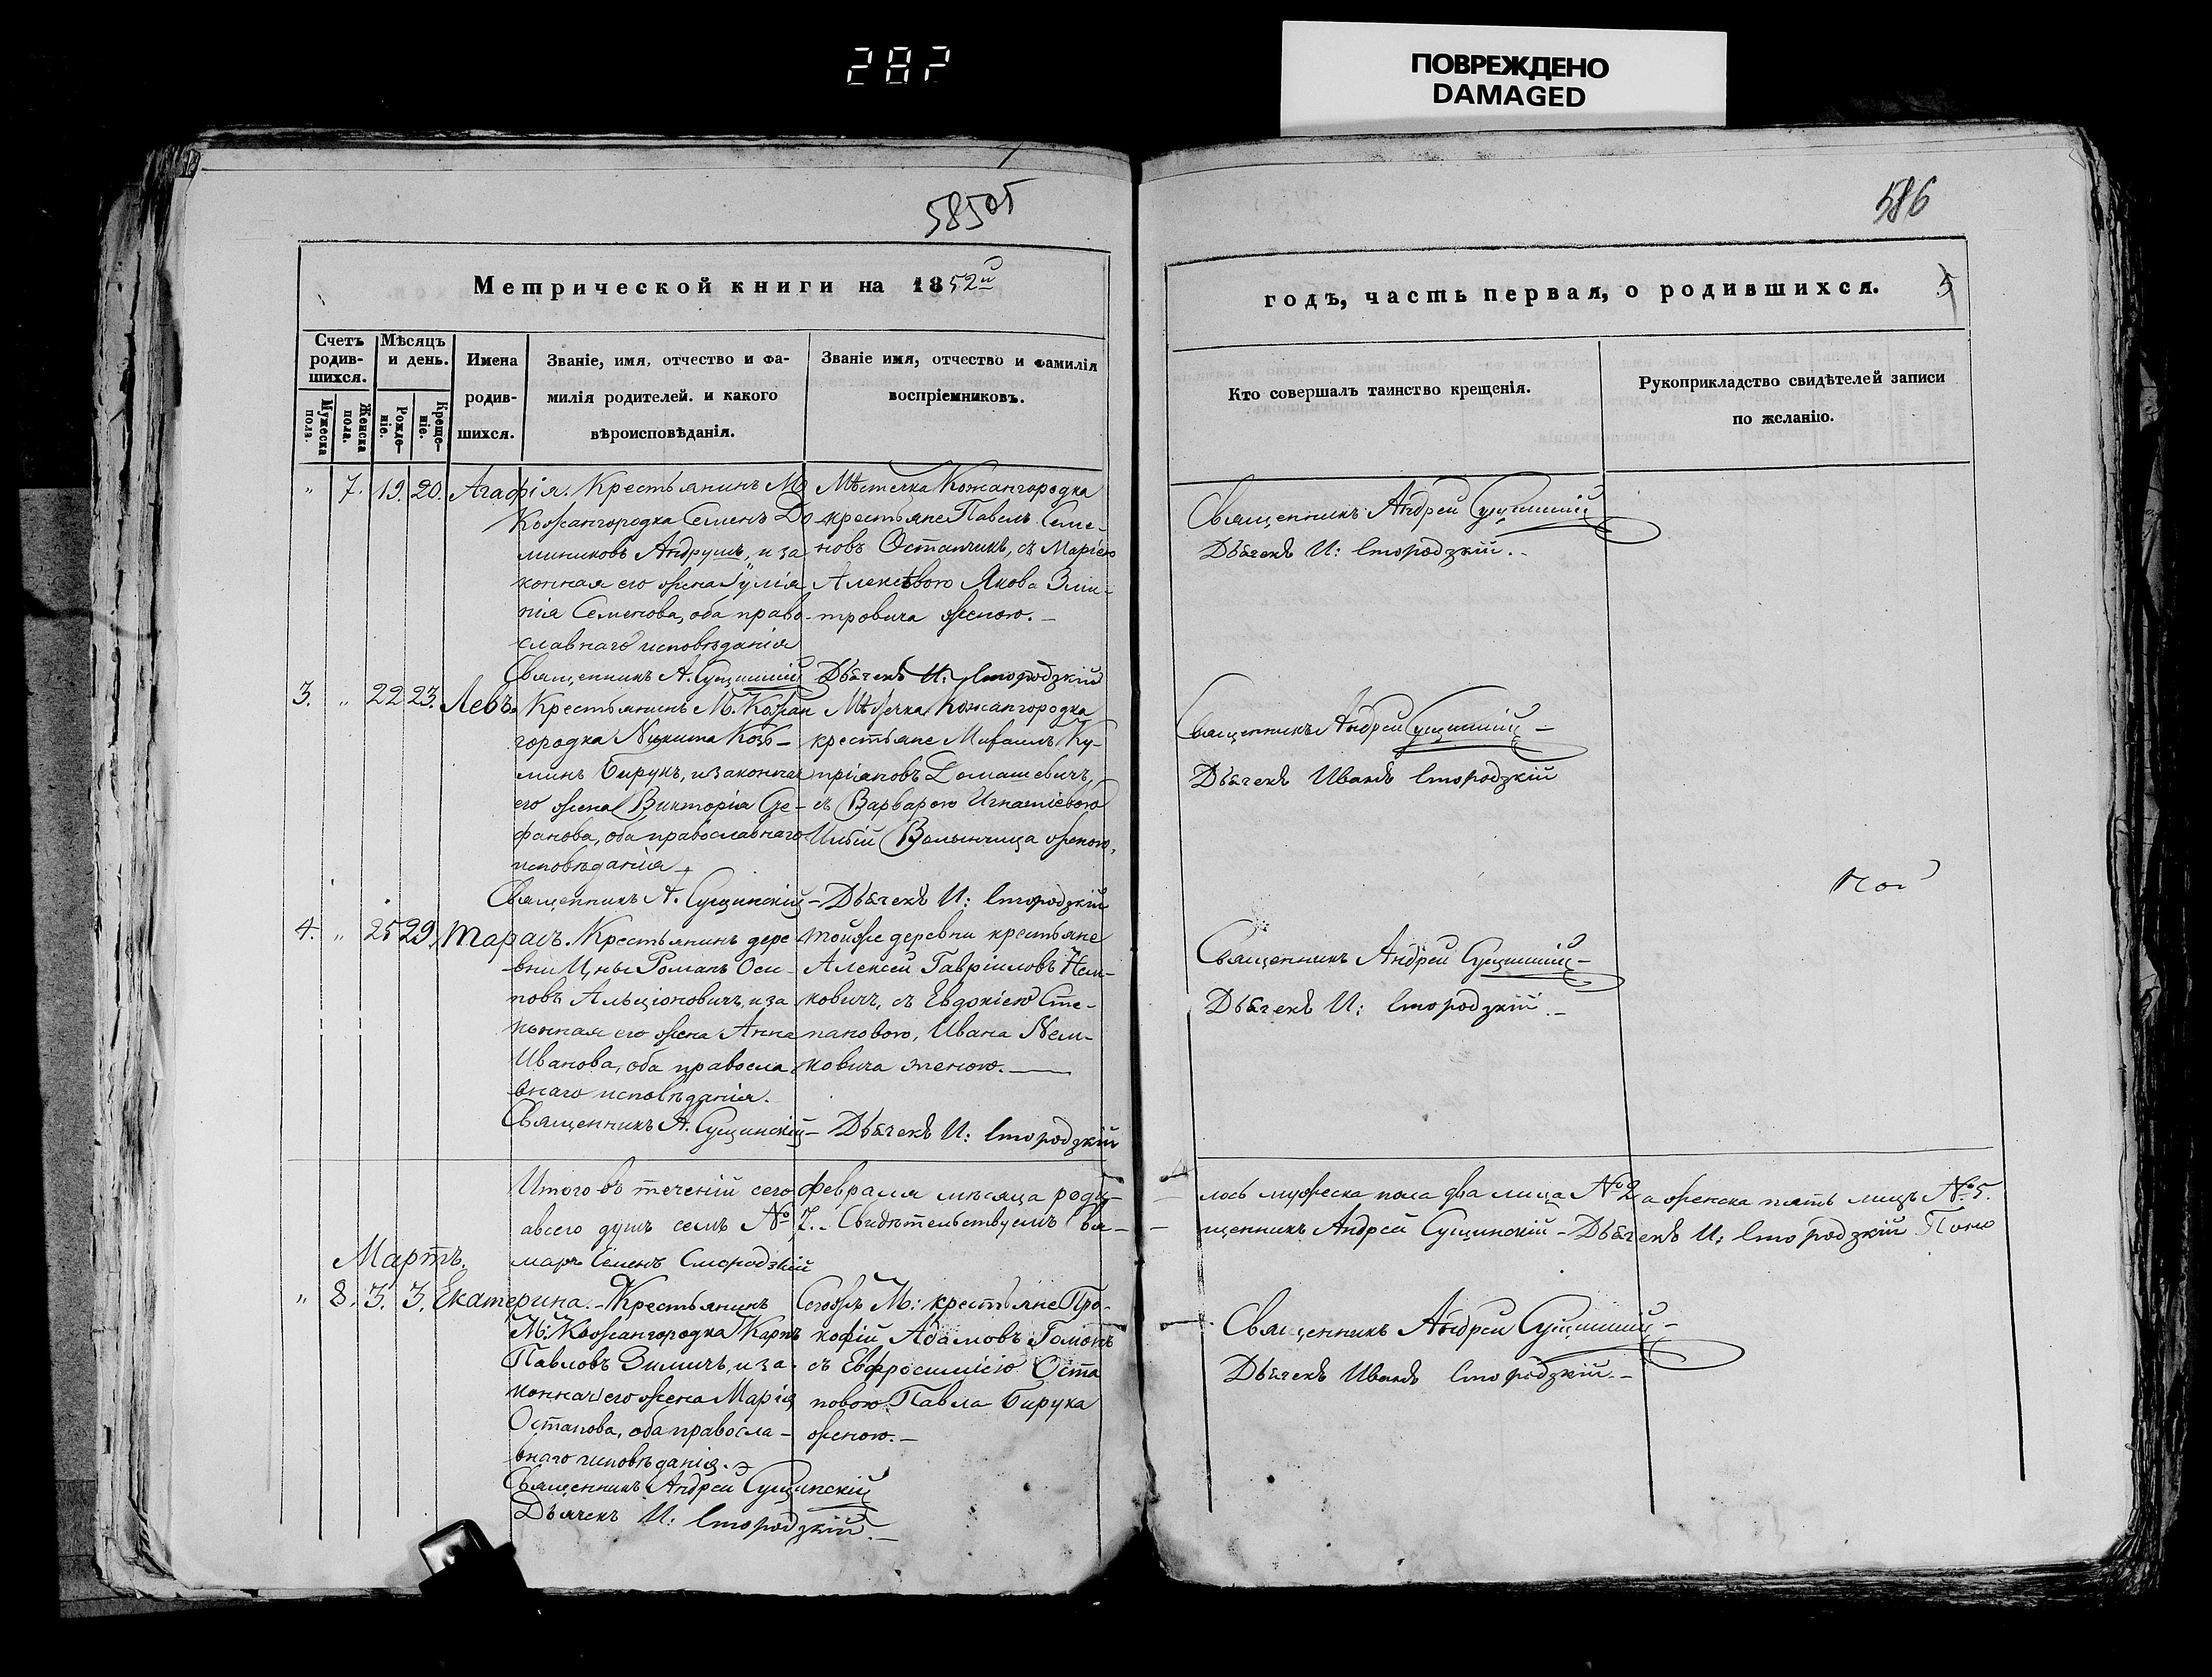 287
ПОВРЕЖДЕНО
DAMAGED
585об
586
Метрической книги на 1852й
годъ, часть первая, о родившихся.
5
Счетъ родив-шихся.
Мужеска пола.
Женска пола.
Мѣсяцъ и день.
Рожде-ніе.
Креще-ніе.
Имена
родив-
шихся.
Званіе, имя, отчество и фа-
милія родителей. и какого
вѣроисповѣданія.
Званіе имя, отчество и фамилія
воспріемниковъ.
Кто совершалъ таинство крещенія.
Рукоприкладство свидѣтелей записи
по желанію.
" 7. 19. 20. Агафія. Крестьянинъ М
Кожангородка Семенъ До
миниковъ Андрушъ, и за
конная его жена Іулія
нія Семенова, оба право
славнаго исповѣданія
Мѣстечка Кожангородка
крестьяне Павелъ Семе-
новъ Остапчикъ, съ Маріею
Алексѣвою Якова Зми-
тровича женою. -
Священникъ А. Сущинскій Дьячекъ И:
Священникъ Андрей Сущинскій
Дьячекъ И:
3. " 22 23. Левъ. Крестьянинъ М. Кожан
городка Никита Козь-
минъ Бирукъ, и законная
его жена Викторія Сте-
фанова, оба православнаго
исповѣданія
Мѣстечка Кожангородка
крестьяне Михаилъ Ку-
пріяновъ Домашевичъ,
съ Варварою Игнатіевою
Ильи Волынчица женою.
Священникъ А. Сущинскій - Дьячекъ И:
Священникъ Андрей Сущинскій -
Дьячекъ Иванъ
4. " 25 29. Тарасъ. Крестьянинъ дере
вни Цны Романъ Оси-
повъ Альціоновичъ, и за
конная его жена Анна
Иванова, оба правосла
внаго исповѣданія.
тойже деревни крестьяне
Алексей Гавріиловъ Нем-
ковичъ, съ Евдокіею Сте-
пановою, Ивана Нем-
ковича женою. -
Священникъ А. Сущинскій - Дьячекъ И:
Священникъ Андрей Сущинскій -
Дьячекъ И:
Итого въ теченіи сего февраля мѣсяца роди-лось мужеска пола два лица № 2 а женска пять лицъ № 5.
а всего душъ семь № 7. Свидѣтельствуемъ Свя-щенникъ Андрей Сущинскій - Дьячекъ И: Поно
марь Семенъ Смородзкій
Мартъ.
" 8. 3. 3. Екатерина. - Крестьянинъ
М: Кожангородка Карпъ
Павловъ Зимичъ, и за-
конная его жена Марія
Остапова, оба правосла-
внаго исповѣданія.
Тогожъ М: крестьяне Про-
кофій Адамовъ Гомонъ
съ Евфросиніею Оста
повою Павла Бирука
женою. -
Священникъ Андрей Сущинскій
Дьячекъ И:
Священникъ Андрей Сущинскій -
Дьячекъ Иванъ